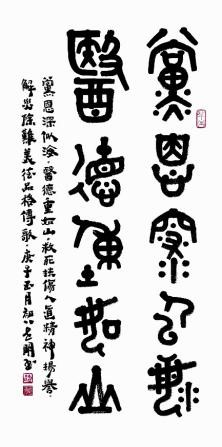 黨恩深似海
醫德重如山
黨恩深似海.醫德重如山.救死扶傷人真精神揚譽.
解災除難美德品格傳歌.庚子五月初八